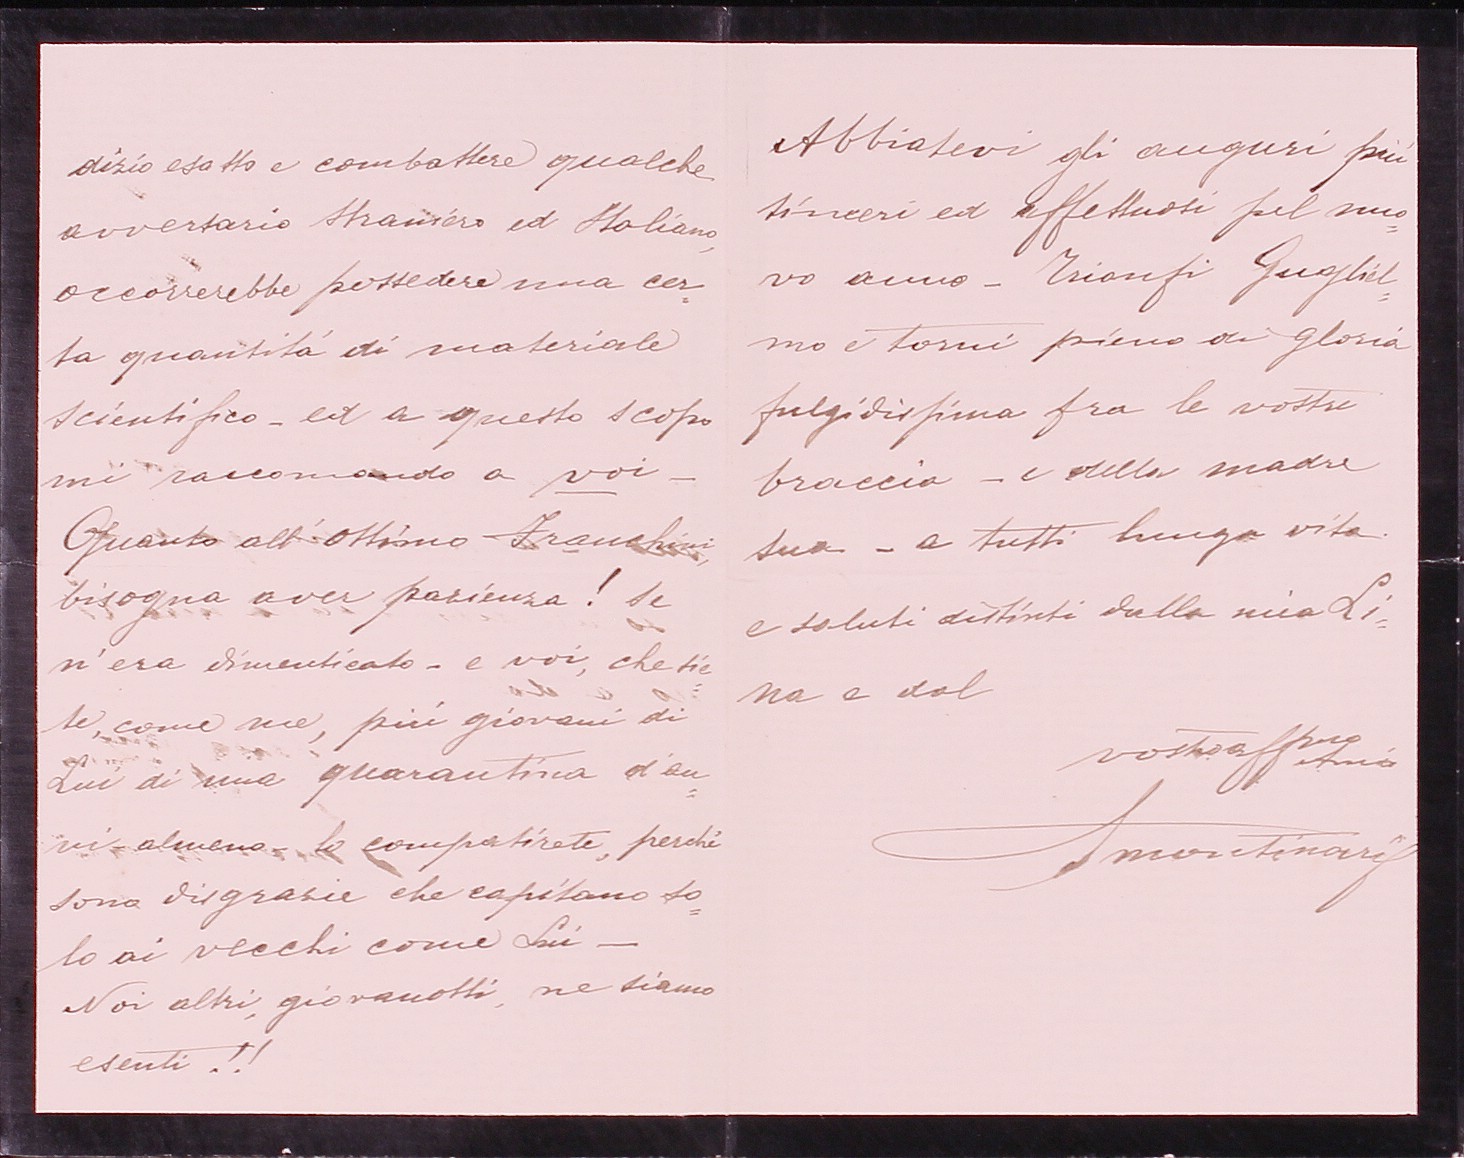 dizio esatto e combattere qualche
avversario straniero ed Italiano,
occorrerebbe possedere una cer=
ta quantità di materiale
scientifico - ed a questo scopo
mi raccomando a voi -
Quanto all'ottimo Franchini,
bisogna aver pazienza! Se
n'era dimenticato - e voi, che sie=
te, come me, più giovani di
Lui di una quarantina d'an=
ni - almeno - lo compatirete, perchè
sono disgrazie che capitano so=
lo ai vecchi come Lui -
Noi altri, giovanotti, ne siamo
esenti!!
Abbiatevi gli auguri più
sinceri ed affettuosi pel nuo=
vo anno - Trionfi Gugliel=
mo e torni pieno di gloria
fulgidissima fra le vostre
braccia - e della madre
sua - a tutti lunga vita
e saluti distinti dalla mia Li=
na e dal
vostro affmo Amico
Montinari